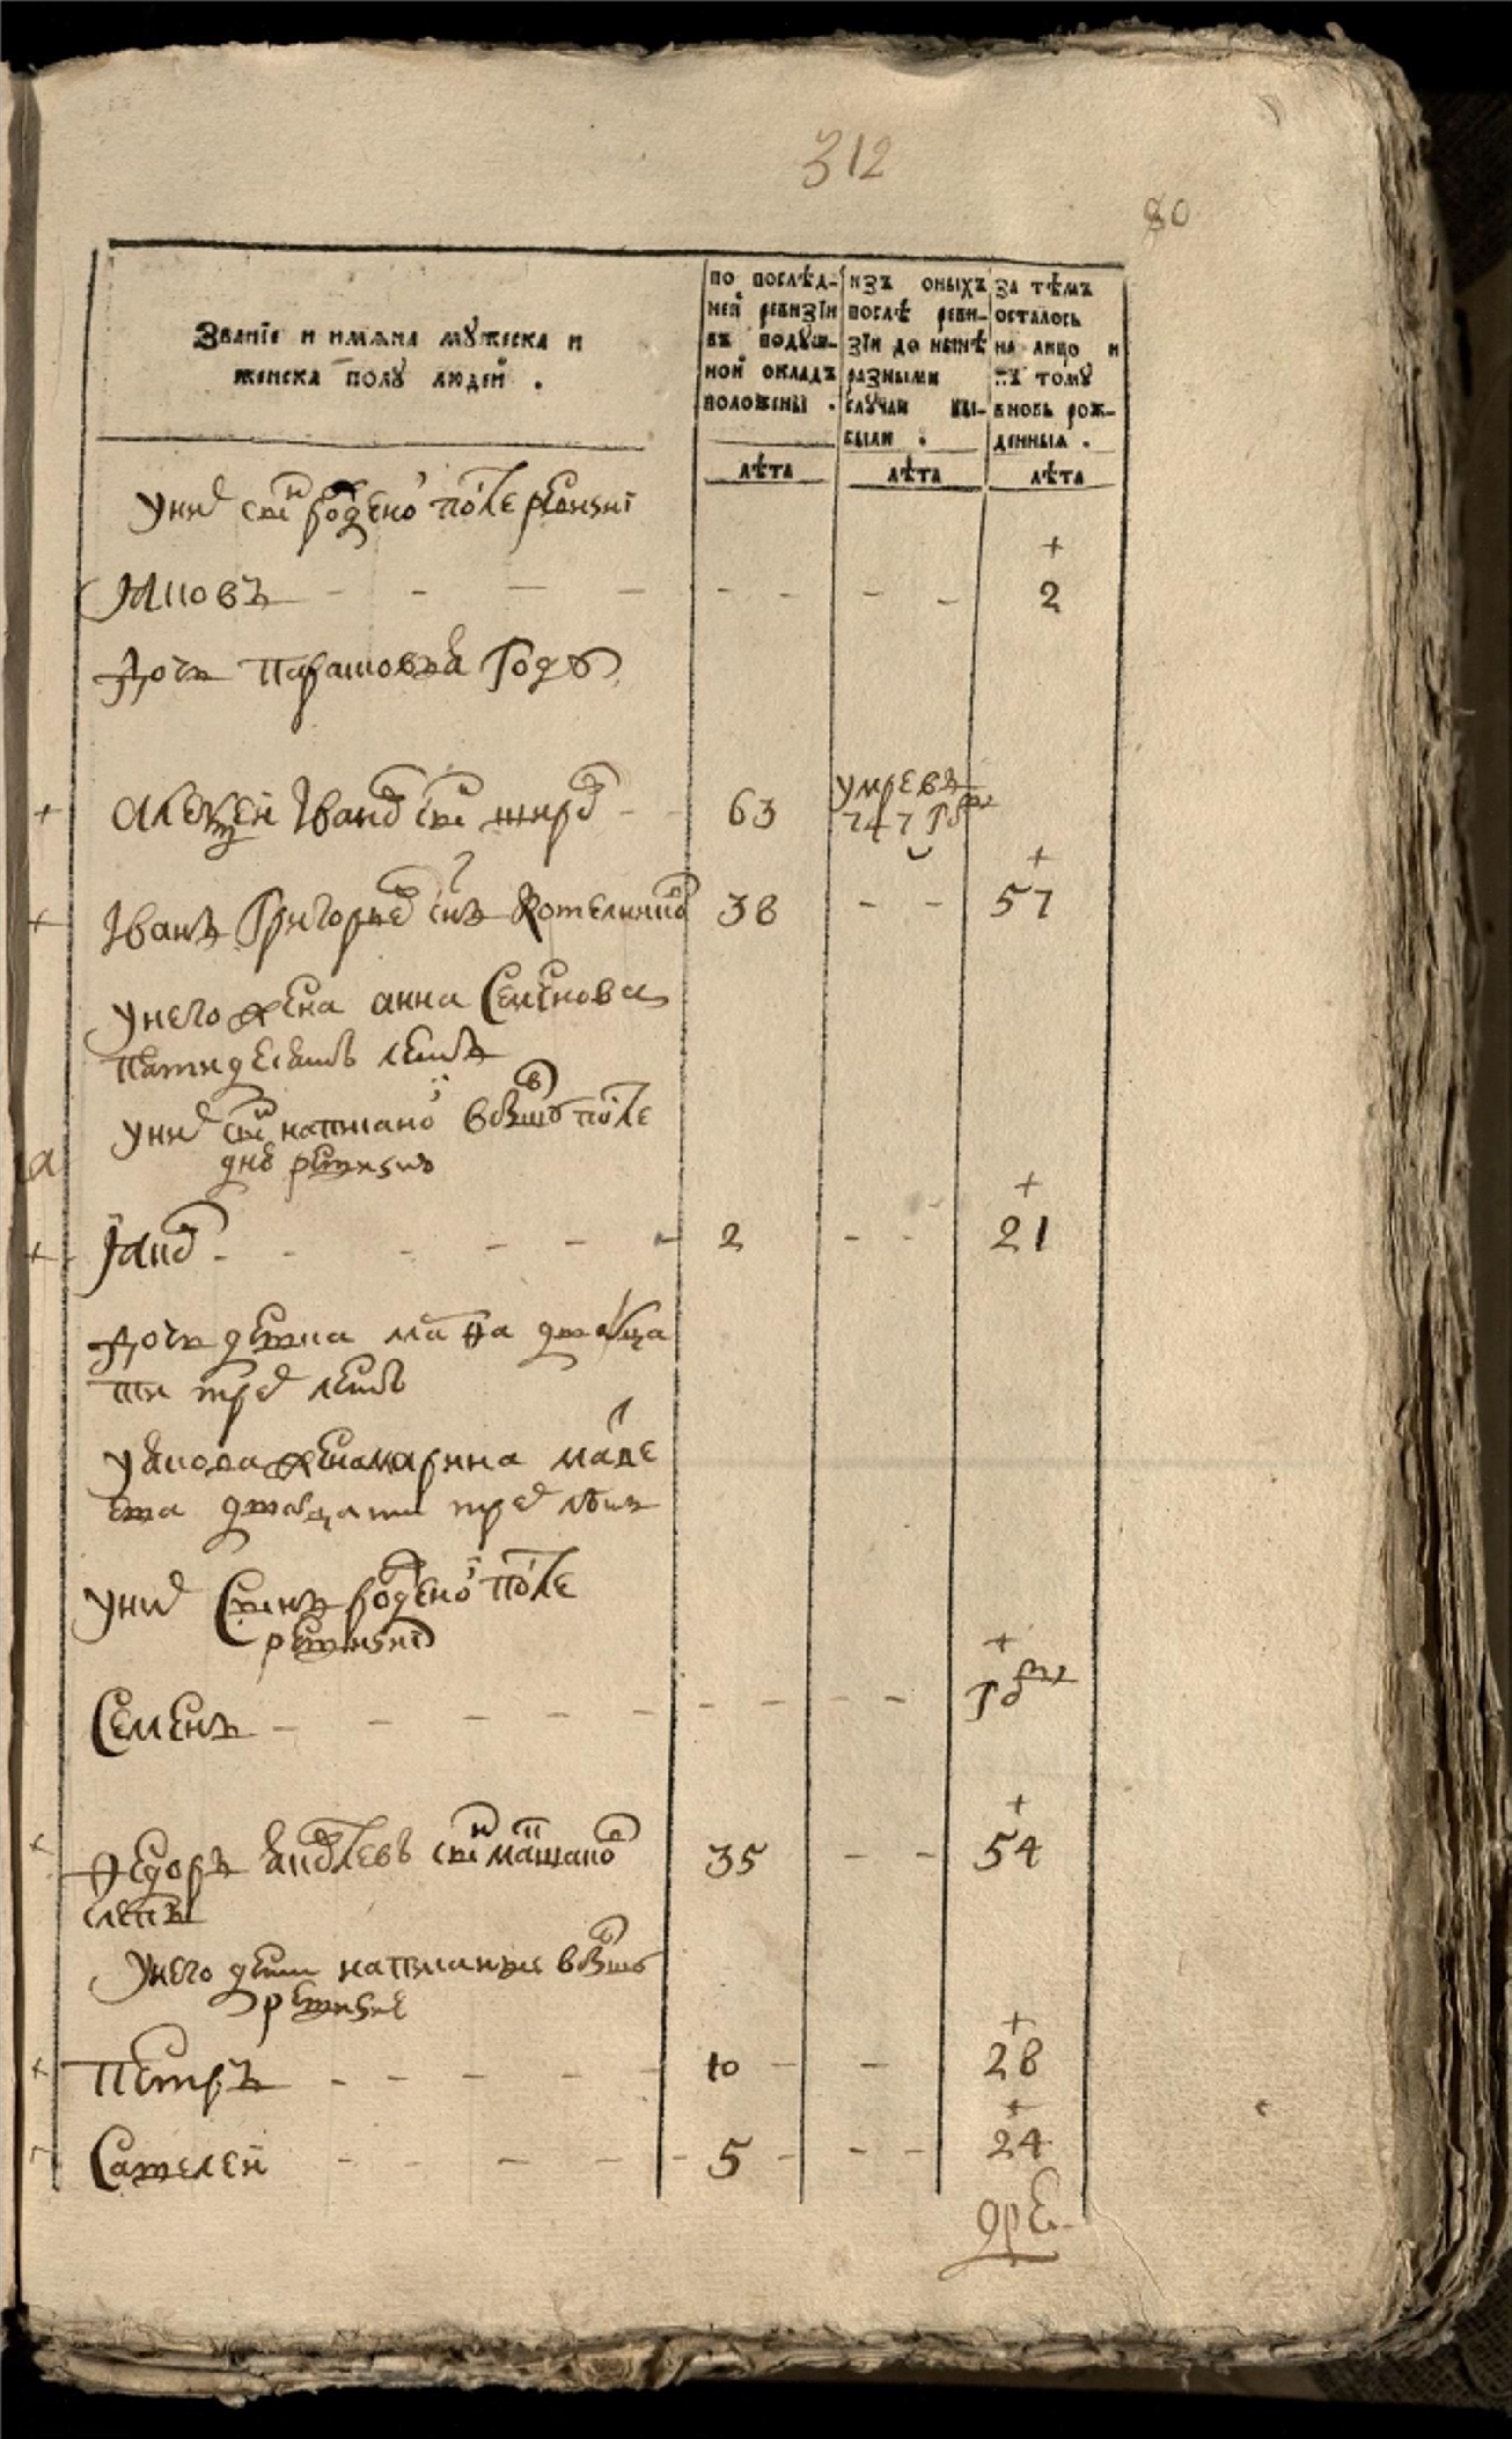 312
80
Званїе и имяна мꙋжеска и
женска полꙋ людей .
по послѣд-
ней ревизїи
въ подꙋш-
ной окладъ
положены .
лѣта
изъ оныхъ
послѣ реви-
зїи до нынѣ
разными
слꙋчаи вы-
были .
лѣта
за тѣмъ
осталось
на лицо и
къ томꙋ
вновь рож-
денныя .
лѣта
у них сн рожденои после ревизиі
+
Яковъ - - - - - - - - 2
дочь Парасковья году
+ Алексеи Іванов снъ - - 63 умре въ
747 году
+
+ Іванъ Григорьев снъ Котелников 38 - - 57
у него жена анна Семенова
пятидесять летъ
у них снъ написанои в бывшую после
днюю ревизию
+
+ Яков - - - - - 2 - - 21
дочь девка двадца
ти трех летъ
у якова жена марина
двадцати трех лѣтъ
у них сынъ рожденои после
ревизиі
+
Семенъ - - - - - - - - - году
+
+ Федоръ снъ 35 - - 54
слепъ
у него дети написанные в бывшую
ревизию
+
+ Петръ - - - - - 10 - - 28
+
Савелеи - - - - - 5 - - - 24